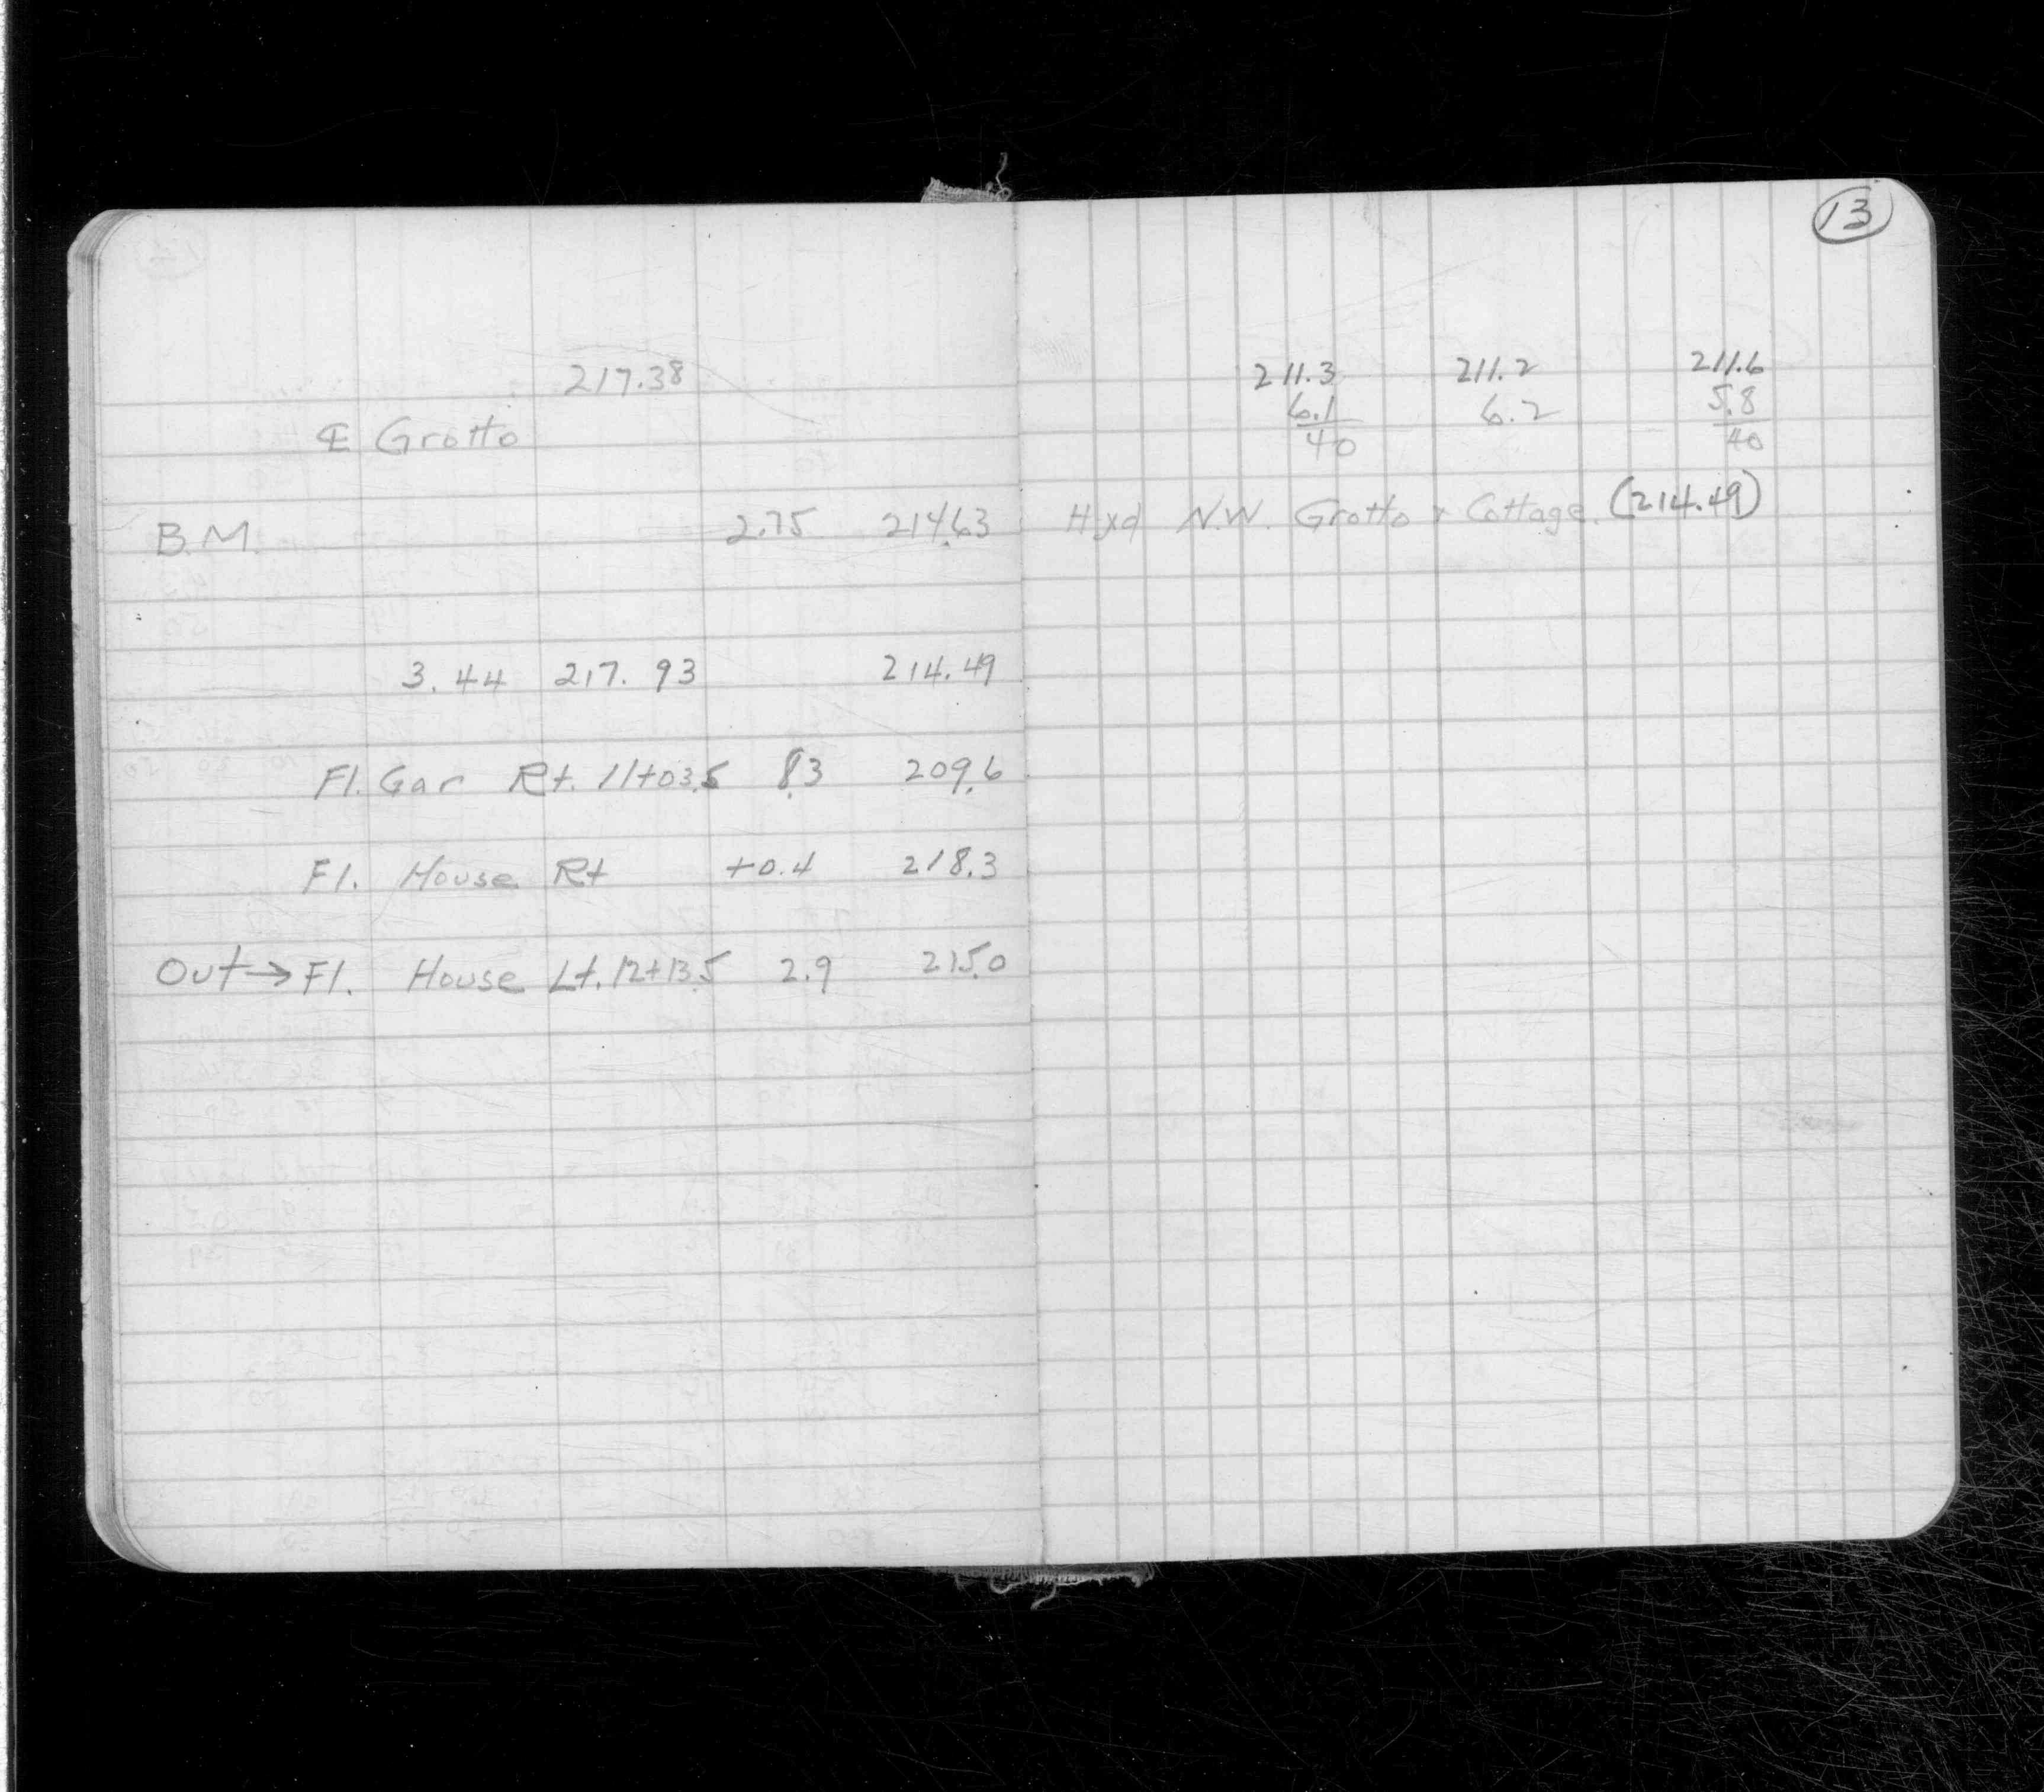 13
217.38
℄ Grotto
B.M. 2.75 214.63
3.44 217.93 214.49
Fl. Gar Rt. 11+03.5 8.3 209.6
Fl. House Rt +0.4 218.3
Out→ Fl. House Lt. 12+13.5 2.9 215.0
211.3 211.2 211.6
6.1 6.2 5.8
40 40
Hyd N.W. Grotto + Cottage. (214.49)